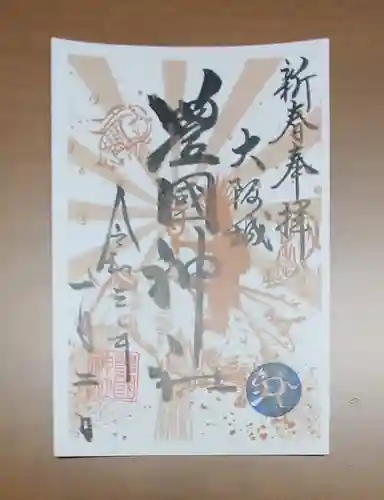 新春奉拝
大阪城
豊國神社
令和三年
一月二日